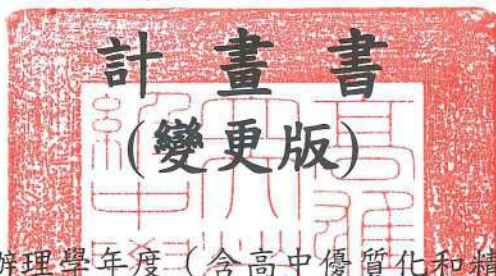 計畫書
(變更版)
辦理學年度（含高中優質化和精